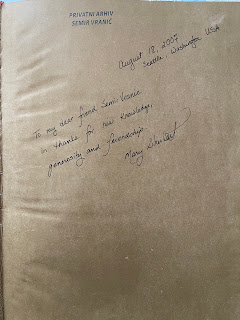 PRIVATNI ARHIV
SEMIR VRANIĆ
August 18, 2007
Seattle, Washington USA
To my dear friend Semir Vranic
in thanks for his knowledge,
generosity and friendship.
Mary